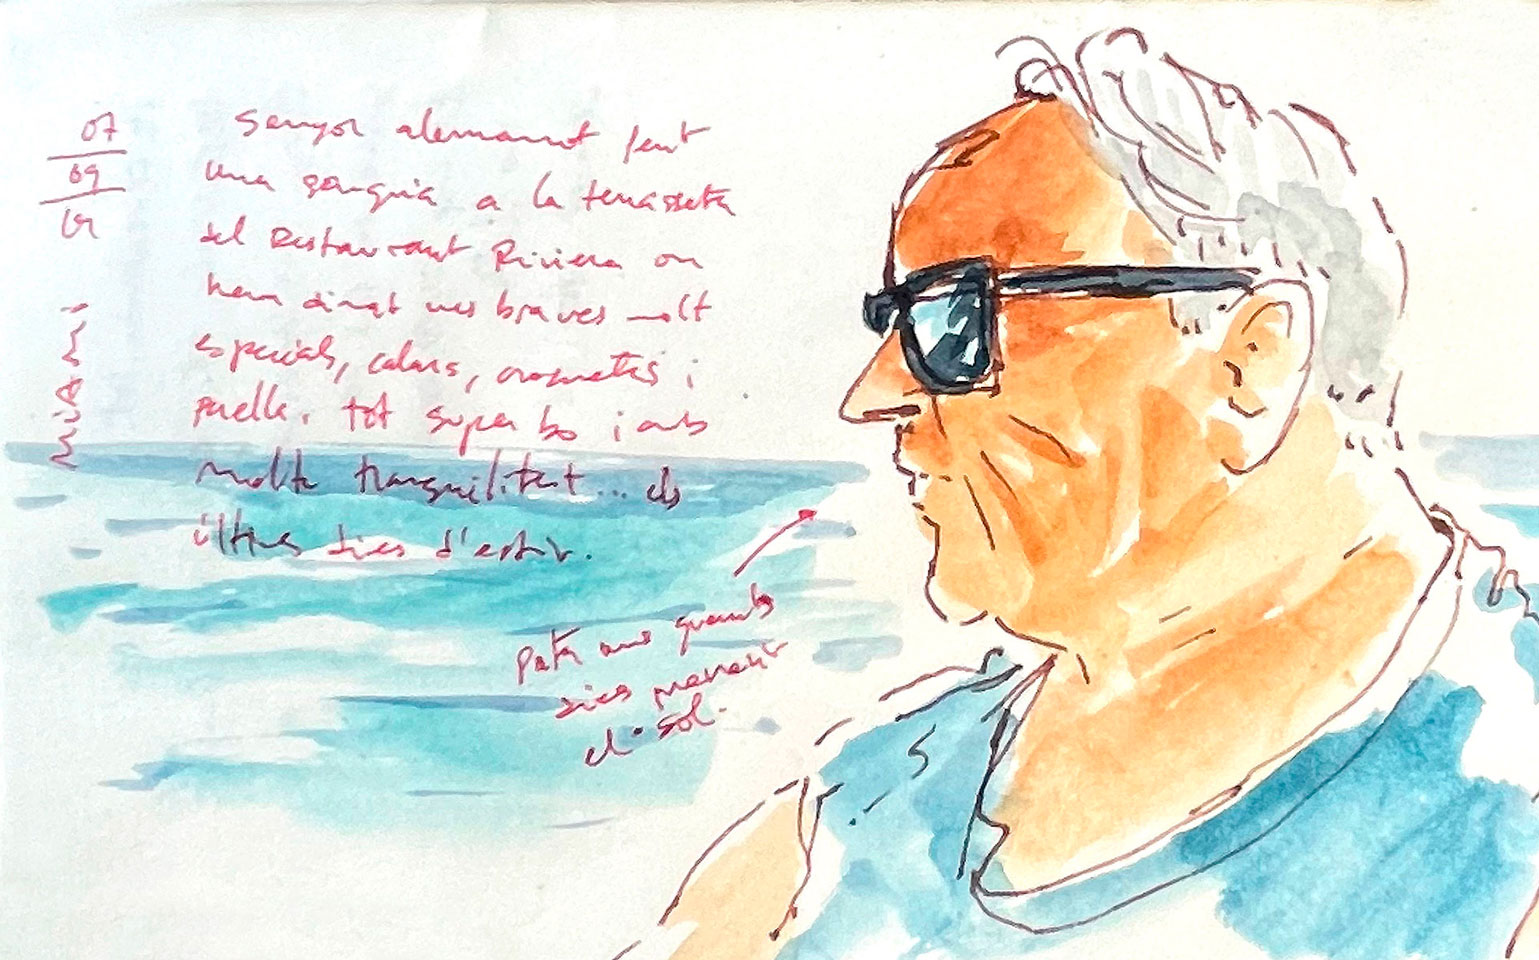 07
09
Senyor alemanot fent
una sangria a la terrasseta
del Restaurant Riviera on
hem dinat unes braves molt
especials, calamars, croquetes i
paella. tot super bo i amb
molta tranquilitat... els
últims dies d'estiu.
MiAMi
Porta uns quants
dies prenent
el sol.